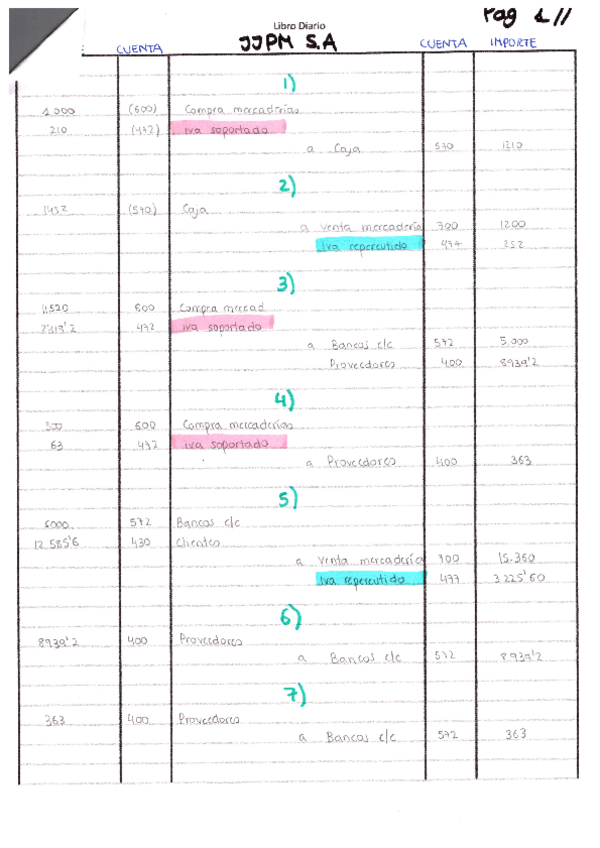 Pag 1 //
Libro Diario
JJPM S.A
CUENTA CUENTA IMPORTE
1)
1.000 (600) Compra mercaderías
210 (472) iva soportado
a Caja 570 1210
2)
1452 (570) Caja
a venta mercadería 700 1200
Iva repercutido 477 252
3)
600 Compra mercad.
472 iva soportado
a Bancos c/c 572 5.000
Proveedores 400 8939'2
4)
300 600 Compra mercaderías
63 472 iva soportado
a Proveedores 400 363
5)
6000 572 Bancos c/c
12.585'6 430 Clientes
a Venta mercadería 700 15.360
Iva repercutido 477 3.225'60
6)
8939'2 400 Proveedores
a Bancos c/c 572 8939'2
7)
363 400 Proveedores
a Bancos c/c 572 363